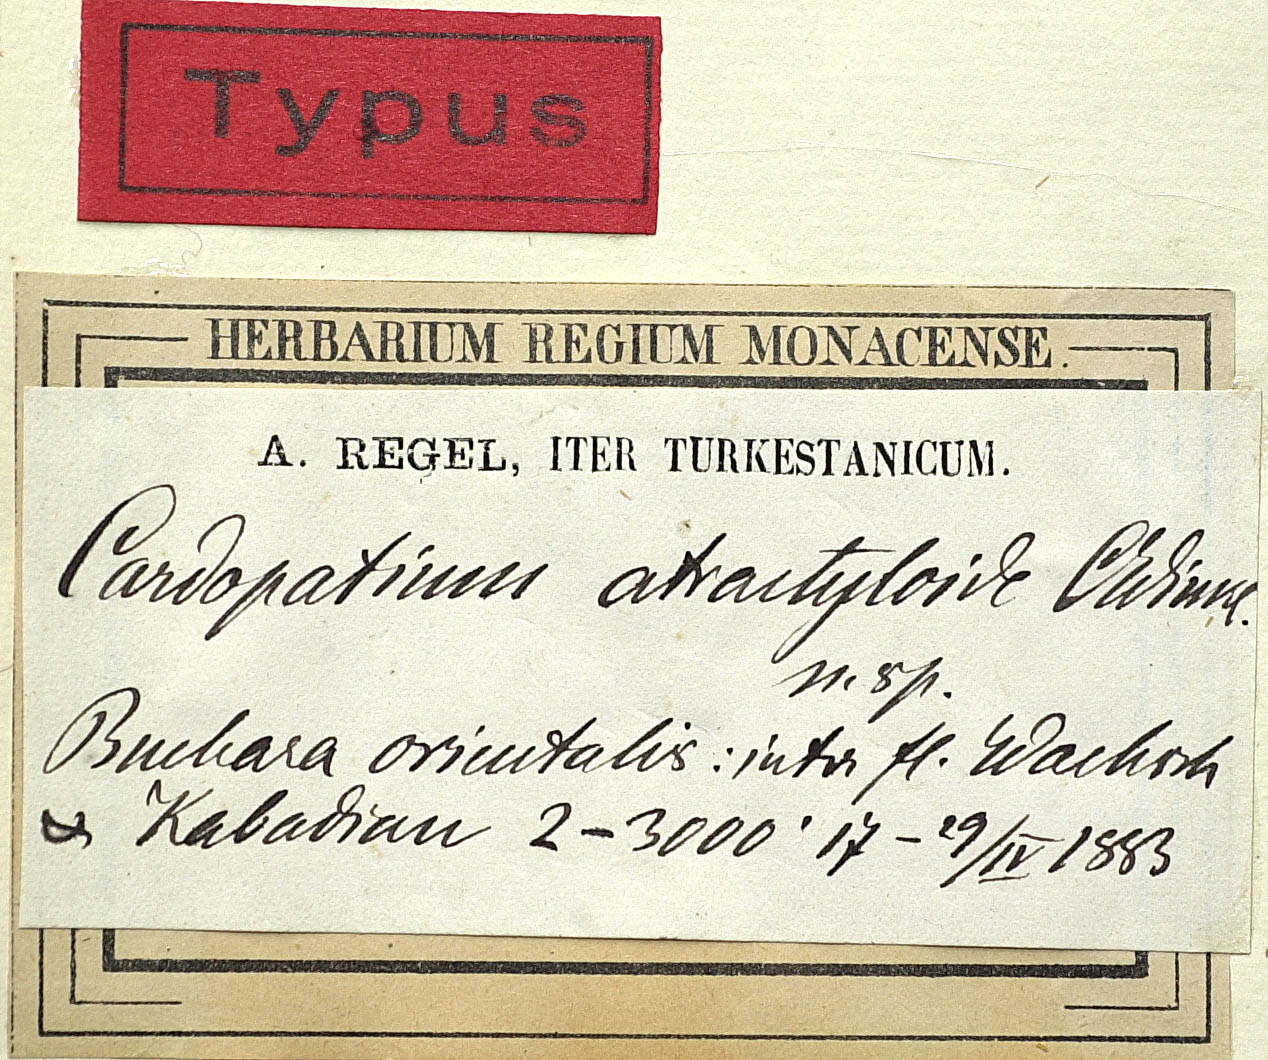 Typus
HERBARIUM REGIUM MONACENSE.
A. REGEL, ITER TURKESTANICUM.
Cardopatium atractyloide
n. sp.
Buchara orientalis: inter fl. Wachsch
& Kabadian 2–3000' 17–29/IV 1883